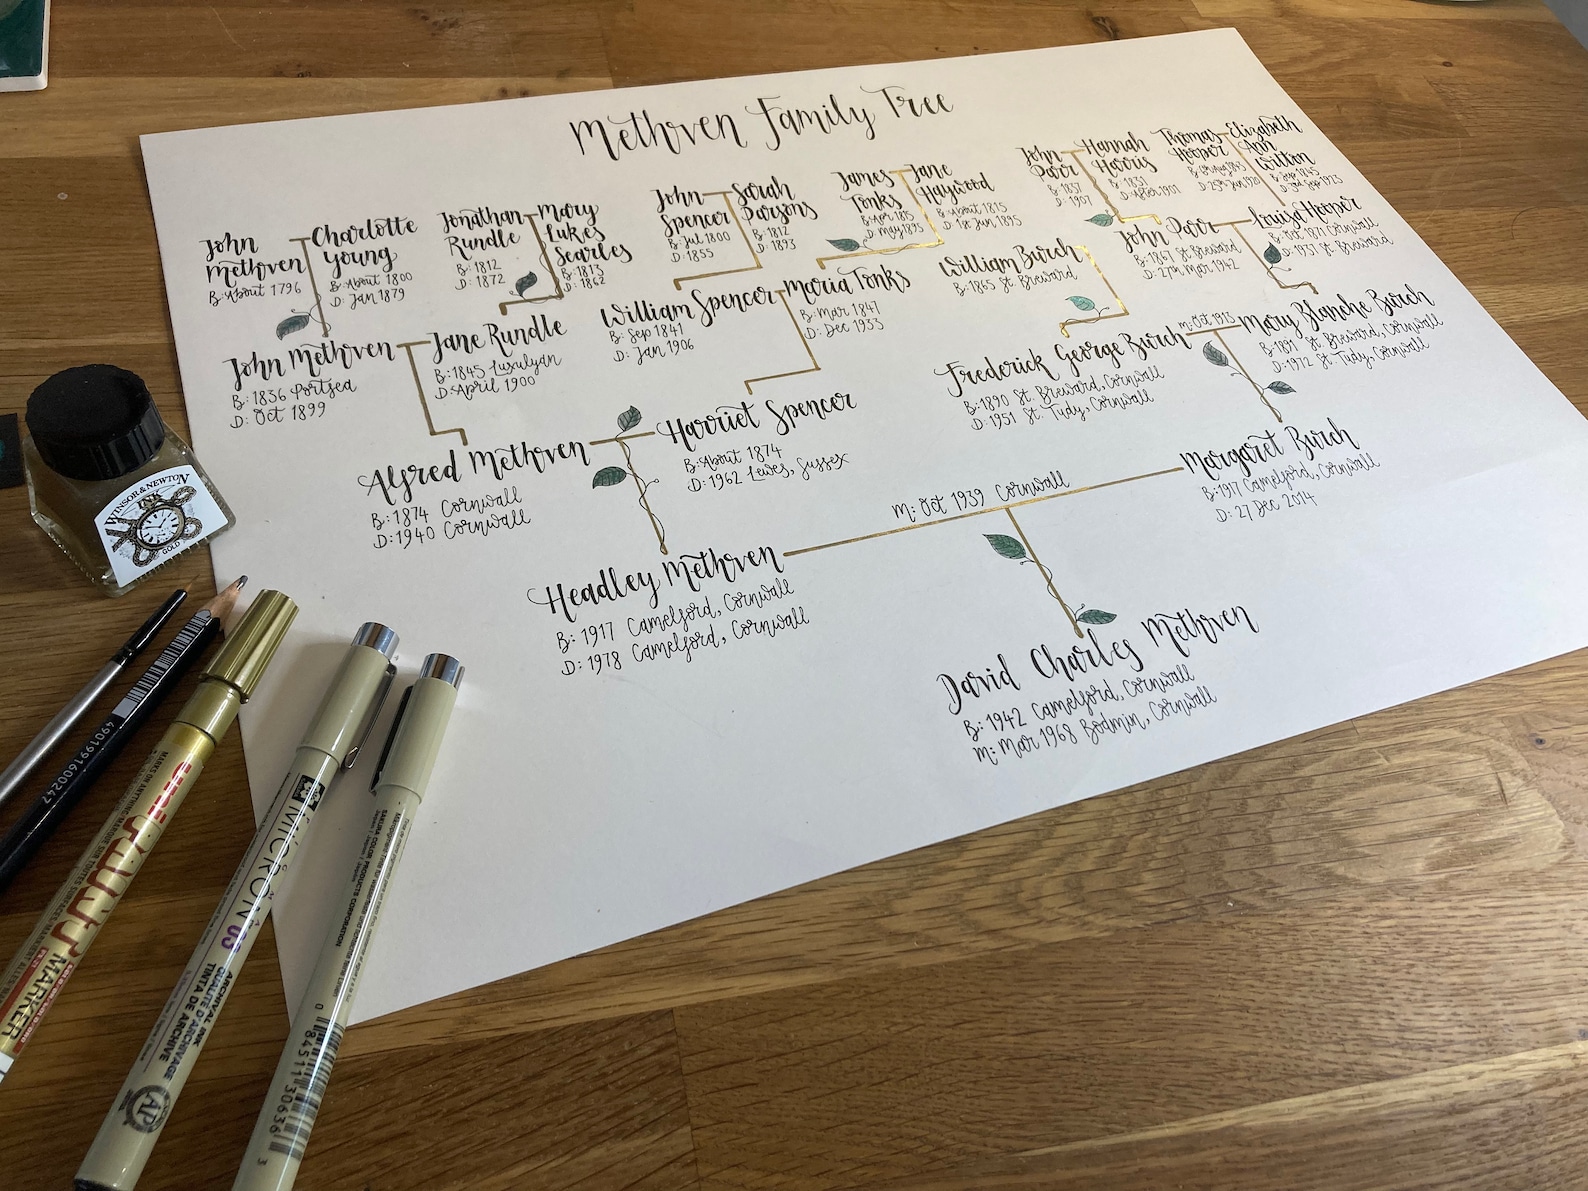 Methven Family Tree
John
Methven
B: About 1796
Charlotte
Young
B: About 1800
D: Jan 1879
Jonathan
Rundle
B: 1812
D: 1872
Mary
Lukes
Searles
B: 1813
D: 1862
John
Spencer
B: Jul 1800
D: 1855
Sarah
Parsons
B: 1812
D: 1893
James
Tonks
B: Apr 1815
D: May 1895
Jane
Haywood
B: About 1815
D: 1st Jan 1895
John
Parr
B: 1837
D: 1907
Hannah
Harris
B: 1831
Thomas
Hooper
Elizabeth
Ann
Wilton
B: Sep 1845
D: 3rd Sep 1923
John Methven
B: 1836 Portsea
D: Oct 1899
Jane Rundle
B: 1845 Luxulyan
D: April 1900
William Spencer
B: Sep 1841
D: Jan 1906
Maria Tonks
B: Mar 1847
D: Dec 1933
William Burch
B: 1865 St. Breward
John Parr
B: 1867 St. Breward
D: 27th Mar 1942
Louisa Hooper
B: Oct 1871 Cornwall
D: 1937 St. Breward
Alfred Methven
B: 1874 Cornwall
D: 1940 Cornwall
Harriet Spencer
B: About 1874
D: 1962 Lewes, Sussex
Frederick George Burch
B: 1890 St. Breward, Cornwall
D: 1951 St. Tudy, Cornwall
m: Oct 1915
Mary Blanche Burch
B: 1891 St. Breward, Cornwall
D: 1972 St. Tudy, Cornwall
Headley Methven
B: 1917 Camelford, Cornwall
D: 1978 Camelford, Cornwall
m: Oct 1939 Cornwall
Margaret Burch
B: 1917 Camelford, Cornwall
D: 27 Dec 2014
David Charles Methven
B: 1942 Camelford, Cornwall
m: Mar 1968 Bodmin, Cornwall
WINSOR & NEWTON
INK
GOLD
4901991600247
MARKER
MICRON 05
ARCHIVAL INK
QUALITÉ D'ARCHIVAGE
TINTA DE ARCHIVE
AP
SAKURA COLOR PRODUCTS CORPORATION
0 84511 30636 3